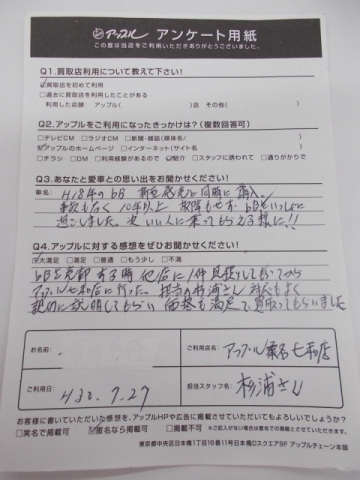 アップル アンケート用紙
この度は当店をご利用いただきありがとうございました。
Q1.買取店利用について教えて下さい!
☑買取店を初めて利用
□過去に買取店を利用したことがある
利用した店舗 アップル( )店 その他( )
Q2.アップルをご利用になったきっかけは?(複数回答可)
□テレビCM □ラジオCM □新聞・雑誌(媒体名/ )
☑アップルのホームページ □インターネット(サイト名 )
□チラシ □DM □利用経験があるので ☑紹介 □スタッフに誘われて □通りがかりで
Q3.あなたと愛車との思い出をお聞かせください!
車名: H18年のbB 新車発売と同時に購入。
事故もなく10年以上 故障もせず bBといっしょに
過ごしました。次、いい人に乗ってもらう様に!!
Q4.アップルに対する感想をぜひお聞かせください!
☑大満足 □満足 □普通 □もう少し □不満
bBを売却する時 他店に1件見積りしてもらってから
アップル七和店に行った。担当の杉浦さん 対応もよく
親切に説明してもらい 価格も満足で買取ってもらいました
お名前
ご利用店名 アップル桑名七和店
ご利用日 H30.7.27
担当スタッフ名 杉浦さん
お客様に書いていただいた感想を、アップルHPや広告に掲載させていただいてもよろしいでしょうか?
□実名で掲載可 ☑匿名なら掲載可 □掲載不可 ※ご記入がない場合は匿名での掲載とさせていただきます。
東京都中央区日本橋1丁目16番11号日本橋Dスクエア9F アップルチェーン本部